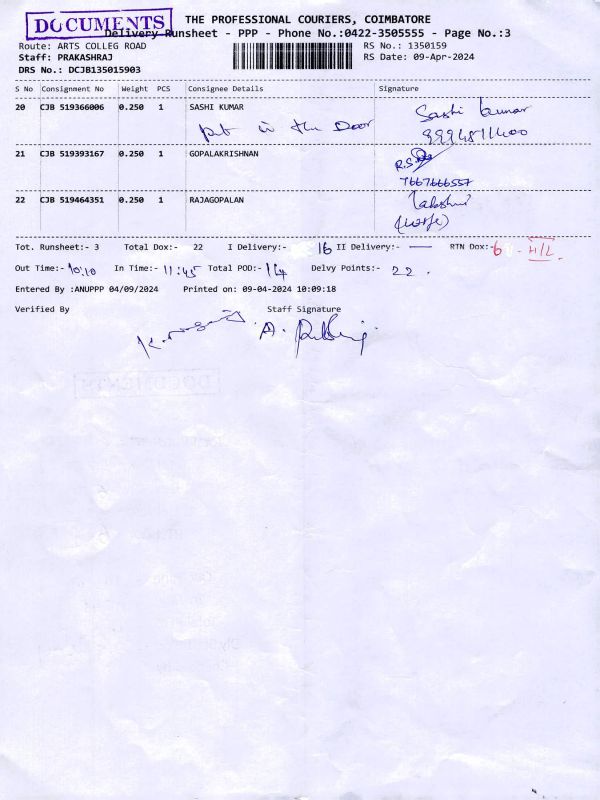 DOCUMENTS
THE PROFESSIONAL COURIERS, COIMBATORE
Delivery Runsheet - PPP - Phone No.:0422-3505555 - Page No.:3
Route: ARTS COLLEG ROAD
RS No.: 1350159
Staff: PRAKASHRAJ
RS Date: 09-Apr-2024
DRS No.: DCJB135015903
S No Consignment No Weight PCS Consignee Details Signature
20 CJB 519366006 0.250 1 SASHI KUMAR Sashi kumar
put in the Door
21 CJB 519393167 0.250 1 GOPALAKRISHNAN
7667666557
22 CJB 519464351 0.250 1 RAJAGOPALAN Lakshmi
(wife)
Tot. Runsheet:- 3 Total Dox:- 22 I Delivery:- 16 II Delivery:- — RTN Dox:- 6 - H/L
Out Time:- 10:10 In Time:- 11:45 Total POD:- 14 Delvy Points:- 22.
Entered By :ANUPPP 04/09/2024 Printed on: 09-04-2024 10:09:18
Verified By Staff Signature